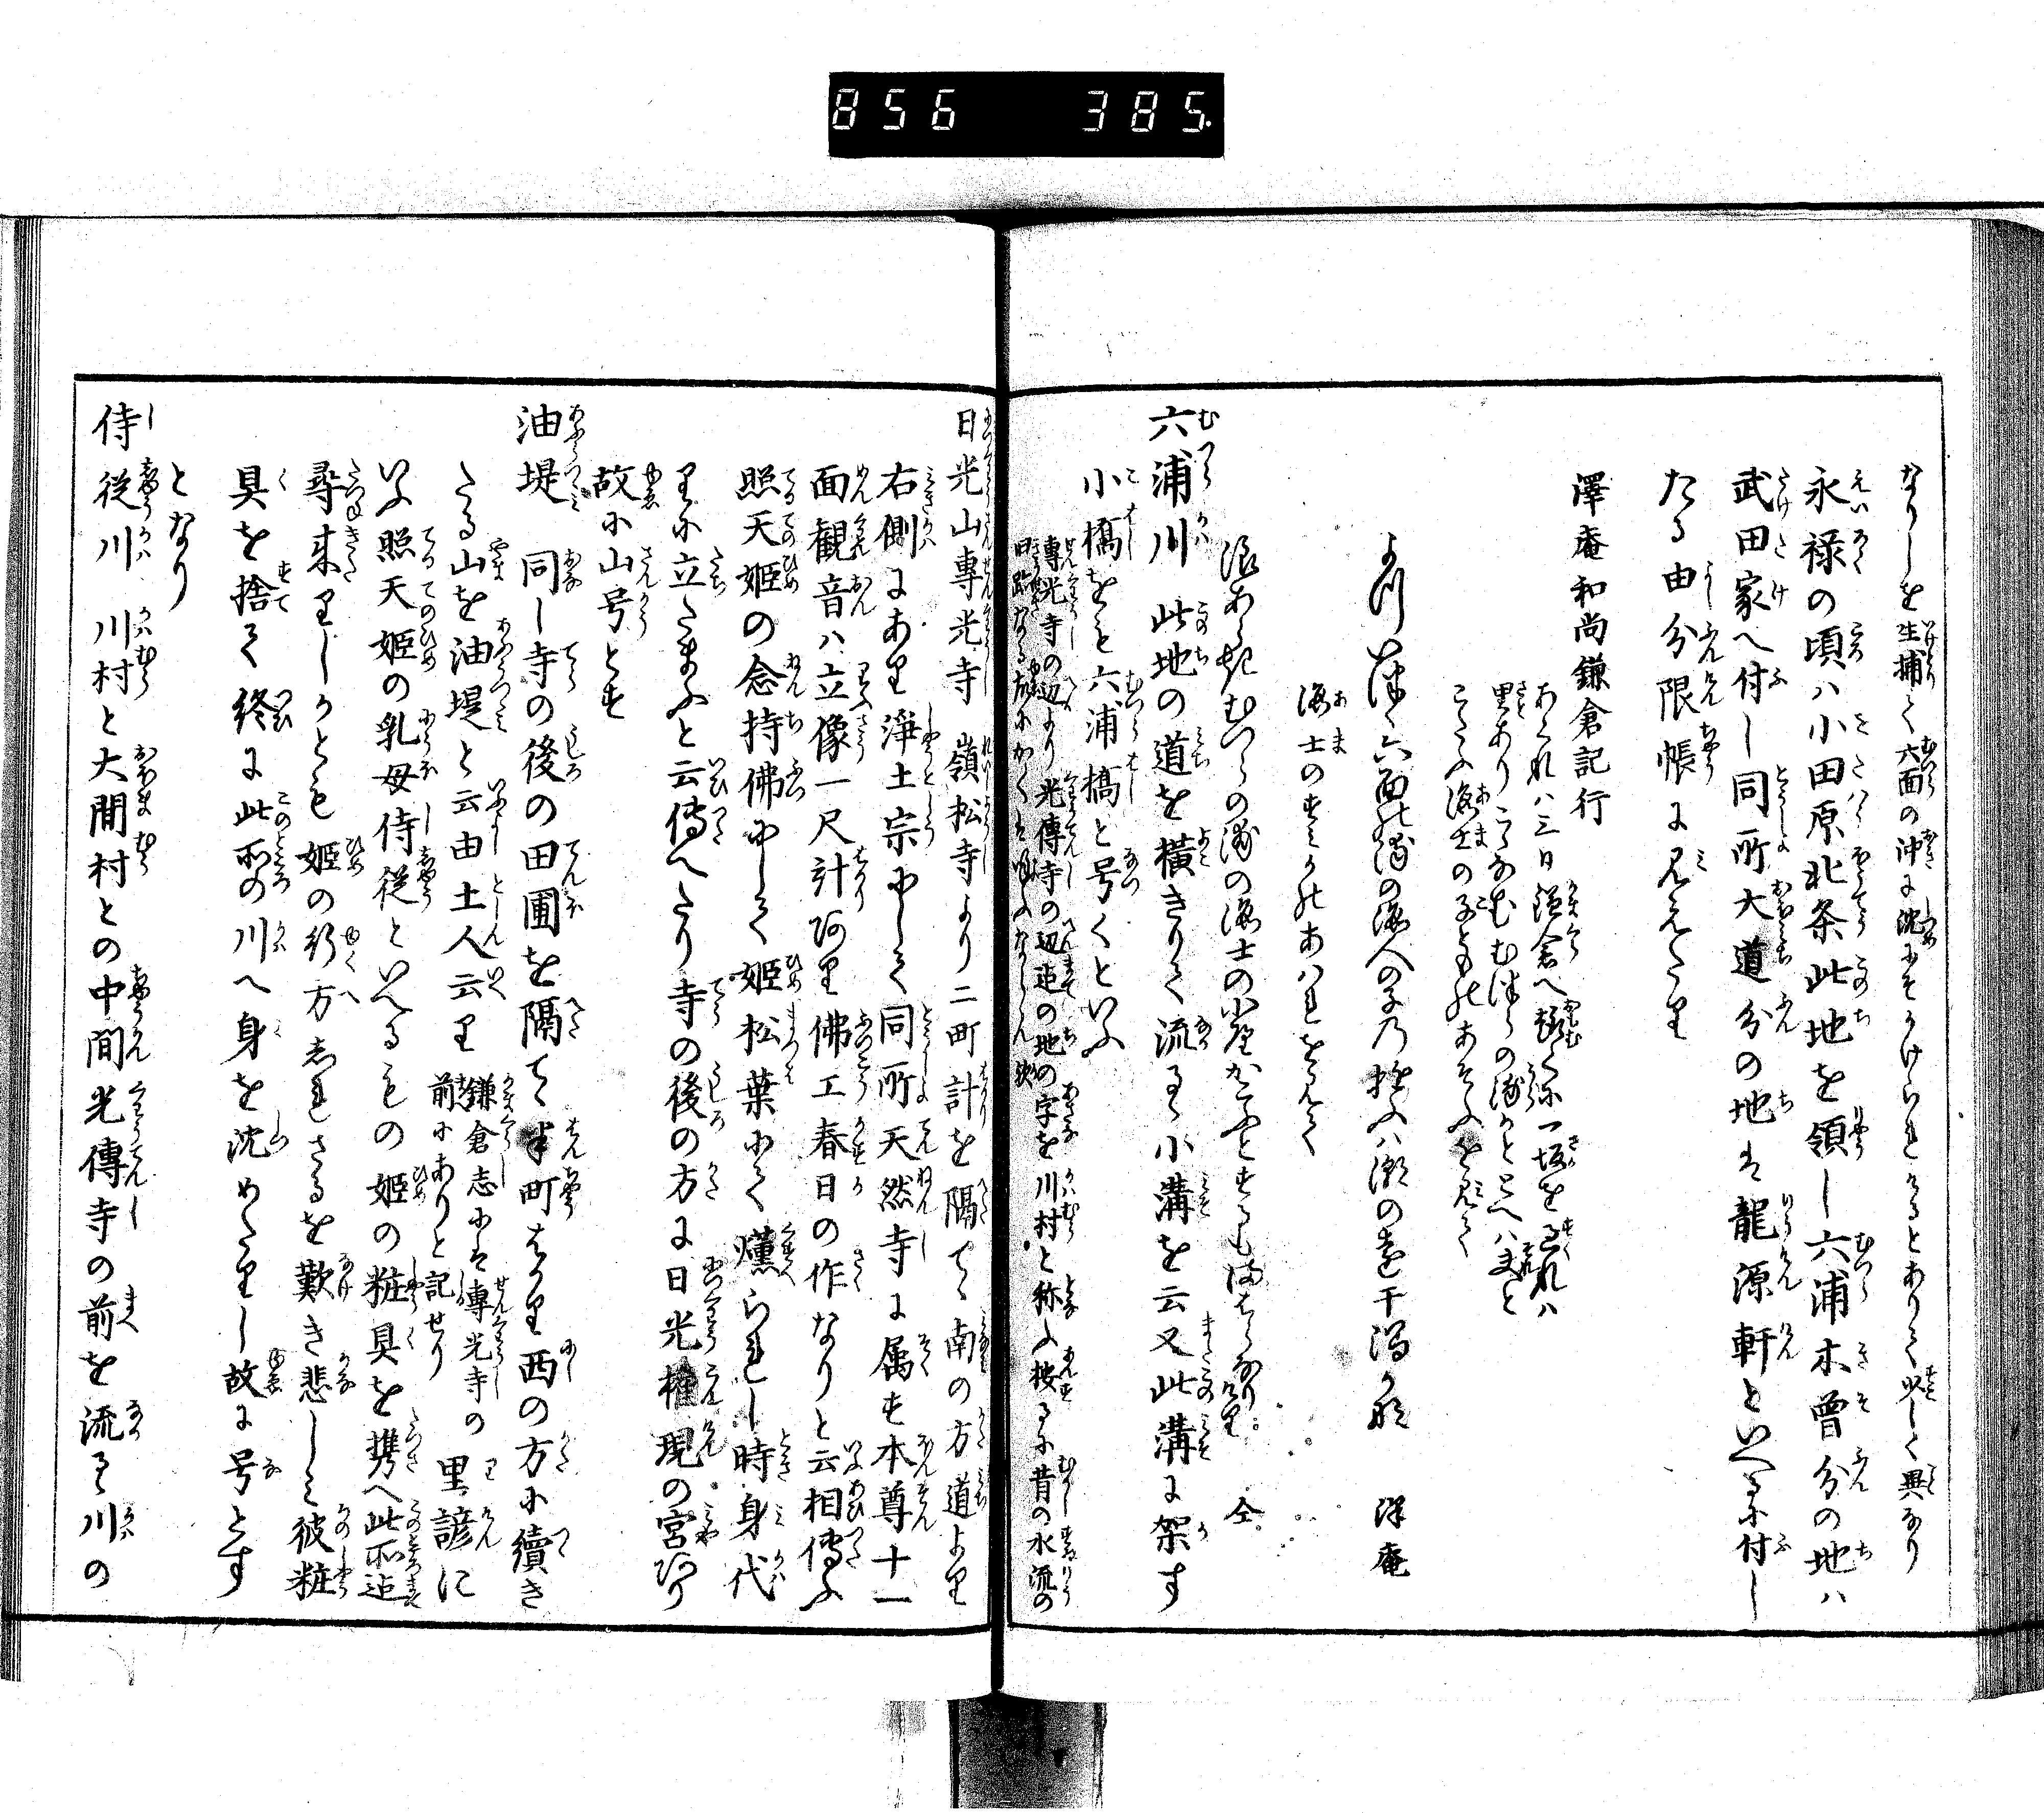 856 385.
なりしを生捕て六面の沖に沈にそかけられけるとありて少しく異なり
永禄の頃ハ小田原北条此地を領し六浦木曽分の地ハ
武田家へ付し同所大道分の地は龍源軒といへるに付し
たる由分限帳に見えたり
澤庵和尚鎌倉記行
あくれハ三日鎌倉へ越くに一坂を過れハ
里ありこゝなむむつらの浦かととへハ爰と
こたふ海士の子とものあそふを見て
六面の浦の海人の子の 干潟 澤庵
浪あらきむつらの浦の海士の 仝
海士のすミかのあハれをミて
六浦川 此地の道を横きりて流るゝ小溝を云又此溝に架す
小橋をも六浦橋と号くといふ
專光寺の辺より光傳寺の辺迄の地の字を川村と称ふ按るに昔の水流の
旧跡なる故にかくは唱ふならん歟
日光山專光寺 嶺松寺より二町計を隔てゝ南の方道より
右側にあり淨土宗にして同所天然寺に属す本尊十一
面観音ハ立像一尺計あり佛工春日の作なりと云相傳ふ
照天姫の念持佛にして姫松葉にて燻らせし時身代
りに立たまふと云傳へたり寺の後の方に日光権現の宮あり
故に山号とす
油堤 同し寺の後の田圃を隔て半町はかり西の方に續き
たる山を油堤と云由土人云り
鎌倉志には專光寺の
前にありと記せり
里諺に
いふ照天姫の乳母侍従といへるもの姫の粧具を携へ此所迄
尋来りしかとも姫の行方しれさるを歎き悲しミ彼粧
具を捨て終に此所の川へ身を沈めたりし故に号とす
となり
侍従川 川村と大間村との中間光傳寺の前を流るゝ川の